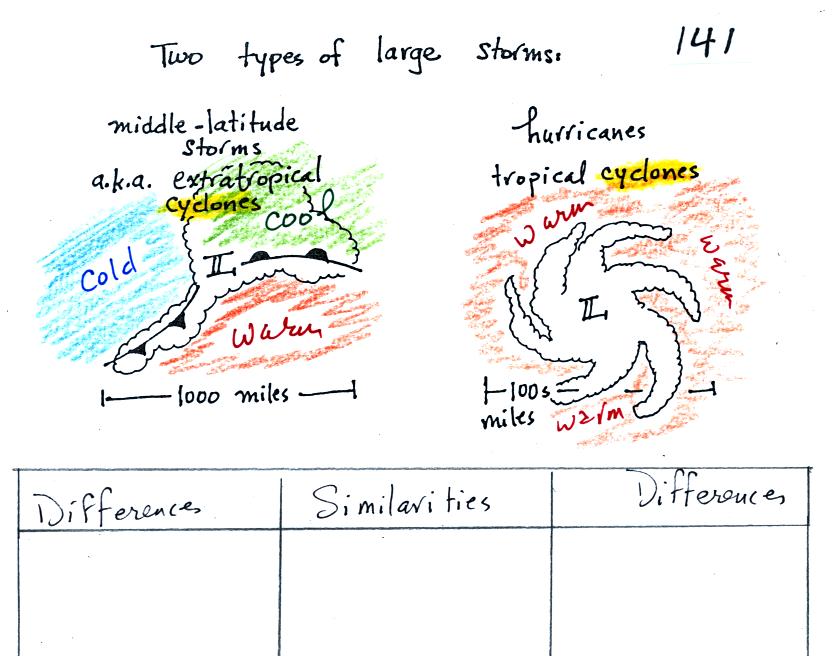 Two types of large storms:
141
middle-latitude
storms
a.k.a. extratropical
cyclones
cool
cold
L
warm
1000 miles
hurricanes
tropical cyclones
warm
warm
L
100s
miles
warm
Differences
Similarities
Differences